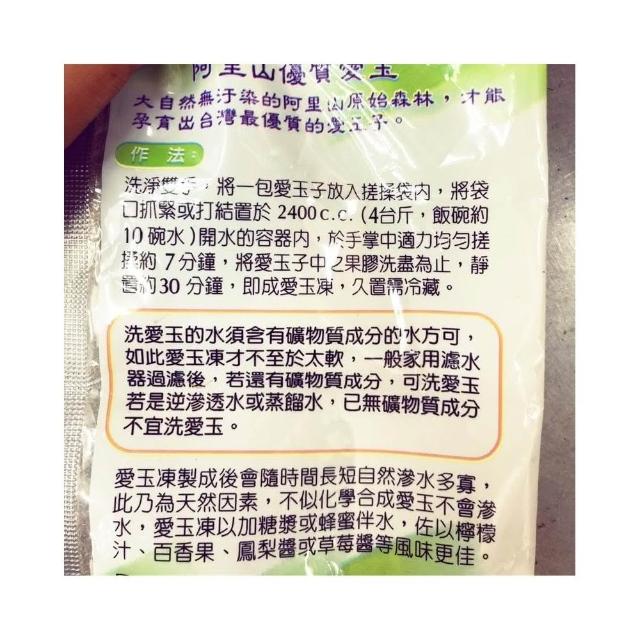 阿里山優質愛玉
大自然無汙染的阿里山原始森林，才能
孕育出台灣最優質的愛玉子。
作 法：
洗淨雙手，將一包愛玉子放入搓揉袋內，將袋
口抓緊或打結置於 2400c.c. (4台斤，飯碗約
10碗水)開水的容器內，於手掌中適力均勻搓
揉約 7 分鐘，將愛玉子中之果膠洗盡為止，靜
置約30 分鐘，即成愛玉凍，久置需冷藏。
洗愛玉的水須含有礦物質成分的水方可，
如此愛玉凍才不至於太軟，一般家用濾水
器過濾後，若還有礦物質成分，可洗愛玉
若是逆滲透水或蒸餾水，已無礦物質成分
不宜洗愛玉。
愛玉凍製成後會隨時間長短自然滲水多寡，
此乃為天然因素，不似化學合成愛玉不會滲
水，愛玉凍以加糖漿或蜂蜜伴水，佐以檸檬
汁、百香果、鳳梨醬或草莓醬等風味更佳。